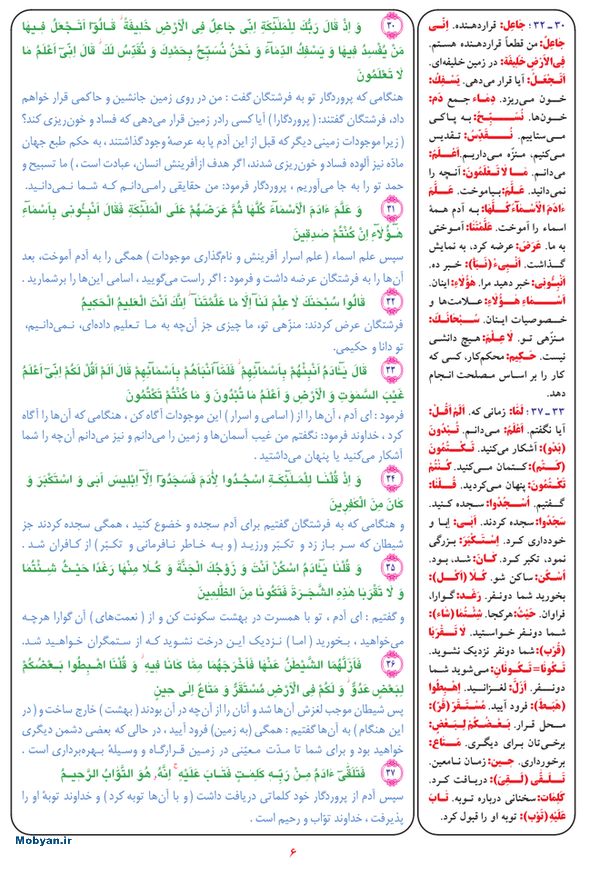 ۳۰ وَ اِذْ قَالَ رَبُّكَ لِلْمَلٰٓئِكَةِ اِنّى جَاعِلٌ فِى الْاَرْضِ خَليفَةً قَالُوٓا اَتَجْعَلُ فيهَا
مَنْ يُفْسِدُ فيهَا وَ يَسْفِكُ الدِّمَآءَ وَ نَحْنُ نُسَبِّحُ بِحَمْدِكَ وَ نُقَدِّسُ لَكَ قَالَ اِنّى اَعْلَمُ مَا
لَا تَعْلَمُونَ
هنگامی که پروردگار تو به فرشتگان گفت : من در روی زمین جانشین و حاکمی قرار خواهم
داد، فرشتگان گفتند: (پروردگارا) آیا کسی رادر زمین قرار می‌دهی که فساد و خون‌ریزی کند؟
( زیرا موجودات زمینی دیگر که قبل از این آدم پا به عرصهٔ وجود گذاشتند ، به حکم طبع جهان
مادّه نیز آلوده فساد و خون‌ریزی شدند، اگر هدف ازآفرینش انسان، عبادت است ، ) ما تسبیح و
حمد تو را به جا می‌آوریم ، پروردگار فرمود: من حقایقی رامی‌دانـم کـه شمـا نـمی‌دانیـد.
۳۱ وَ عَلَّمَ ءَادَمَ الْاَسْمَآءَ كُلَّهَا ثُمَّ عَرَضَهُمْ عَلَى الْمَلٰٓئِكَةِ فَقَالَ اَنْبِئُونى بِاَسْمَآءِ
هٰٓؤُلَآءِ اِنْ كُنْتُمْ صٰدِقينَ
سپس علم اسماء ( علم اسرار آفرینش و نام‌گذاری موجودات ) همگی را به آدم آموخت، بعد
آن‌ها را به فرشتگان عرضه داشت و فرمود : اگر راست می‌گویید ، اسامی این‌ها را برشمارید .
۳۲ قَالُوا سُبْحٰنَكَ لَا عِلْمَ لَنَآ اِلَّا مَا عَلَّمْتَنَآ اِنَّكَ اَنْتَ الْعَليمُ الْحَكيمُ
فرشتگان عرض کردند: منزّهی تو، ما چیزی جز آن‌چه به مـا تـعلیم داده‌ای، نمـی‌دانیـم،
تو دانا و حکیمی.
۳۳ قَالَ يٰٓـَٔادَمُ اَنْبِئْهُمْ بِاَسْمَآئِهِمْ فَلَمَّآ اَنْبَاَهُمْ بِاَسْمَآئِهِمْ قَالَ اَلَمْ اَقُلْ لَكُمْ اِنّىٓ اَعْلَمُ
غَيْبَ السَّمٰوٰتِ وَ الْاَرْضِ وَ اَعْلَمُ مَا تُبْدُونَ وَ مَا كُنْتُمْ تَكْتُمُونَ
فرمود : ای آدم ، آن‌ها را از ( اسامی و اسرار ) این موجودات آگاه کن ، هنگامی که آن‌ها را آگاه
کرد ، خداوند فرمود: نگفتم من غیب آسمان‌ها و زمین را می‌دانم و نیز می‌دانم آن‌چه را شما
آشکار می‌کنید یا پنهان می‌داشتید .
۳۴ وَ اِذْ قُلْنَا لِلْمَلٰٓئِكَةِ اسْجُدُوا لِاٰدَمَ فَسَجَدُوٓا اِلَّآ اِبْليسَ اَبٰى وَ اسْتَكْبَرَ وَ
كَانَ مِنَ الْكٰفِرينَ
و هنگامی که به فرشتگان گفتیم برای آدم سجده و خضوع کنید ، همگی سجده کردند جز
شیطان که سـر بـاز زد و تکبّر ورزیـد ( و بـه خـاطر نـافرمانی و تکبّر ) از کـافران شـد .
۳۵ وَ قُلْنَا يٰٓـَٔادَمُ اسْكُنْ اَنْتَ وَ زَوْجُكَ الْجَنَّةَ وَ كُلَا مِنْهَا رَغَدًا حَيْثُ شِئْتُمَا
وَ لَا تَقْرَبَا هٰذِهِ الشَّجَرَةَ فَتَكُونَا مِنَ الظّٰلِمينَ
و گفتیم : ای آدم ، تو با همسرت در بهشت سکونت کن و از ( نعمت‌های ) آن گوارا هرچـه
می‌خواهید ، بـخورید ( امـا ) نـزدیک ایـن درخت نشوید کـه از ستمگران خـواهیـد شـد.
۳۶ فَاَزَلَّهُمَا الشَّيْطٰنُ عَنْهَا فَاَخْرَجَهُمَا مِمَّا كَانَا فيهِ وَ قُلْنَا اهْبِطُوا بَعْضُكُمْ
لِبَعْضٍ عَدُوٌّ وَ لَكُمْ فِى الْاَرْضِ مُسْتَقَرٌّ وَ مَتَاعٌ اِلٰى حينٍ
پس شیطان موجب لغزش آن‌ها شد و آنان را از آن‌چه در آن بودند (بهشت ) خارج ساخت و ( در
این هنگام ) به آن‌ها گفتیم : همگی (به زمین) فرود آیید ، در حالی که بعضی دشمن دیگری
خواهید بود و برای شما تا مـدّت معیّنی در زمـین قـرارگاه و وسیلهٔ بـهره‌برداری است .
۳۷ فَتَلَقّٰىٓ ءَادَمُ مِـنْ رَبِّـهِ كَلِمٰتٍ فَـتَابَ عَلَـيْهِ اِنَّهُ هُوَ التَّوَّابُ الرَّحيمُ
سپس آدم از پروردگار خود کلماتی دریافت داشت ( و با آن‌ها توبه کرد ) و خداوند توبهٔ او را
پذیرفت ، خداوند توّاب و رحیم است .
۳۰ ـ ۳۲ ؛ جَاعِل: قراردهنده. اِنّـى
جَاعِلٌ: من قطعاً قراردهنده هستم.
فِى الْاَرْضِ خَليفَةً: در زمین خلیفه‌ای.
اَتَجْعَلُ: آیا قرار می‌دهی. يَسْفِكُ:
خـون مـی‌ریزد. دِمَاء: جـمع دَم:
خـون‌ها. نُسَـبِّـحُ: بـه پـاکـی
می‌ستاییم. نُـقَدِّسُ: تـقدیس
می‌کنیم، منزّه می‌داریم. اَعْلَمُ:
می‌دانم. مَـا لَا تَعْلَمُونَ: آن‌چه را
نمی‌دانید. عَلَّمَ: بیاموخت. عَلَّمَ
ءَادَمَ الْاَسْمَآءَ كُلَّهَا: به آدم همهٔ
اسماء را آموخت. عَلَّمْتَنَا: آموختی
به ما. عَرَضَ: عرضه کرد، به نمایش
گـذاشت. اَنْبِىءْ (نَبَأ): خبر ده.
اَنْبِئُونى: خبر دهید مرا. هٰؤُلَاءِ: اینان.
اَسْـمَـاءِ هٰؤُلَاءِ: عـلامـت‌ها و
خصوصیات اینـان. سُـبْحَانَكَ:
منزّهی تو. لَا عِلْمَ: هـیچ دانشی
نیست. حَكيم: محکم‌کار، کسی که
کار را بر اساس مـصلحت انجام
دهد.
۳۳ ـ ۳۷ ؛ لَمَّا: زمانی که. اَلَمْ اَقُلْ:
آیا نگفتم. اَعْلَمُ: می‌دانم. تُبْدُونَ
(بَدْو): آشکار می‌کنید. تَكْتُمُونَ
(كَتْم): کـتمان می‌کنید. كُـنْتُمْ
تَكْتُمُونَ: پنهان می‌کردید. قُـلْنَا:
گفتیم. اُسْجُدُوا: سجده کـنید.
سَجَدُوا: سجده کردند. اَبـٰى: إبا و
خودداری کرد. اِسْتَكْبَرَ: بزرگی
نمود، تکبر کرد. كَانَ: شـد، بـود.
اُسْكُنْ: ساکن شو. كُلَا (اَكْل):
بخورید شما دونـفر. رَغَـد: گـوارا،
فراوان. حَيْثُ: هرکجا. شِئْتُمَا (شَاء):
شما دونـفر خـواستید. لَا تَـقْرَبَا
(قُرْب): شما دونفر نزدیک نشوید.
تَكُونَا= تَكُونَانِ: می‌شوید شما
دونـفر. اَزَلَّ: لغـزانـید. اِهْبِطُوا
(هَبْط): فرود آیید. مُسْتَقَرّ (قَرّ):
محل قـرار. بَعْضُكُمْ لِبَعْضٍ:
برخی‌تان برای دیگری. مَـتَاع:
برخورداری. حين: زمان نامعین.
تَـلَقّٰـى (لَـقْى): دریـافت کـرد.
كَلِمَات: سخنانی درباره توبه. تَابَ
عَلَيْهِ (تَوْب): توبه او را قبول کرد.
Mobyan.ir
۶